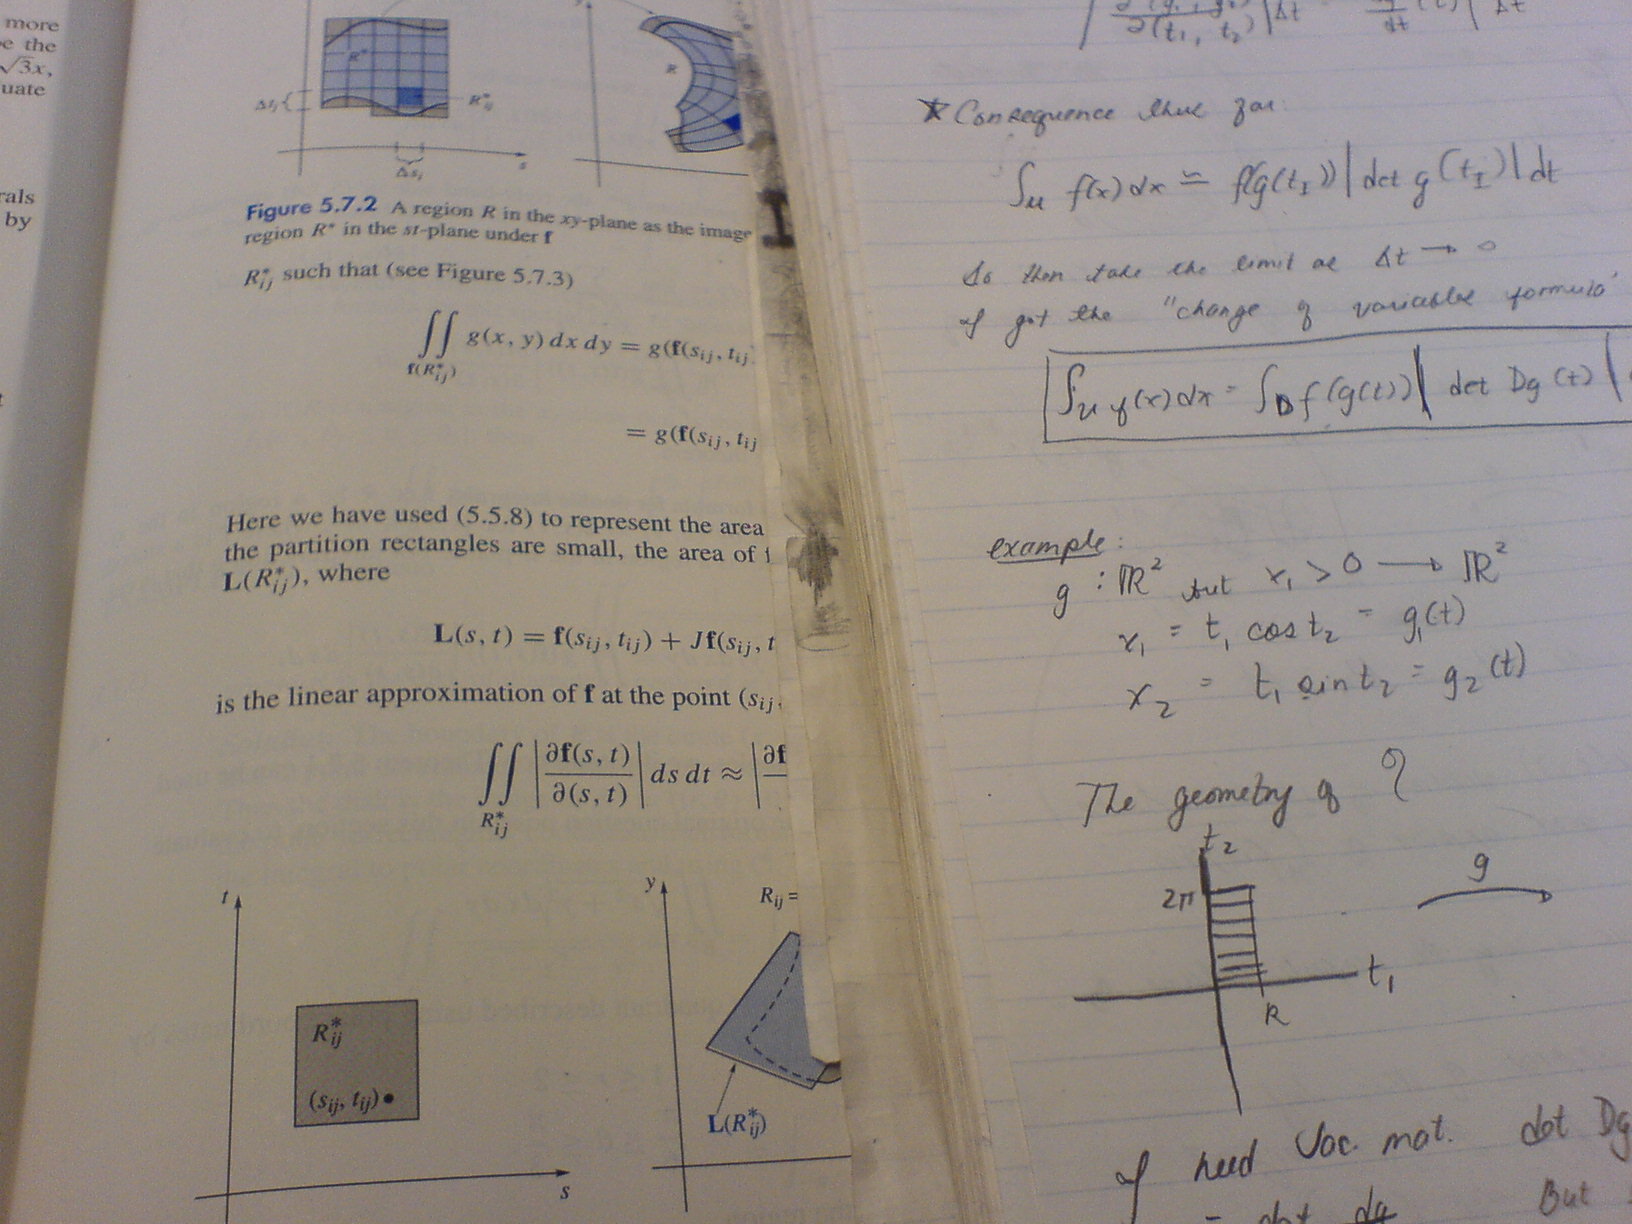 more
e the
√3x,
uate
rals
by
R*
R
Δt_j{
R*_ij
Δs_i
s
Figure 5.7.2 A region R in the xy-plane as the image
region R* in the st-plane under f
R*_ij such that (see Figure 5.7.3)
∬ g(x, y) dx dy = g(f(s_ij, t_ij
f(R*_ij)
= g(f(s_ij, t_ij
Here we have used (5.5.8) to represent the area
the partition rectangles are small, the area of
L(R*_ij), where
L(s, t) = f(s_ij, t_ij) + Jf(s_ij, t
is the linear approximation of f at the point (s_ij,
∬ |∂f(s, t)/∂(s, t)| ds dt ≈ |∂f
R*_ij
t
R*_ij
(s_ij, t_ij)
s
y
R_ij =
L(R*_ij)
∂(t₁, t₂) | Δt dt (t) | Δt
* Consequence thus far:
∫_U f(x) dx ≈ f(g(t_I)) | det g(t_I) | dt
So then take the limit as Δt → 0
I get the "change of variables formula"
∫_U f(x) dx = ∫_D f(g(t)) | det Dg(t) |
example:
g : ℝ² but x₁ > 0 → ℝ²
x₁ = t₁ cos t₂ = g₁(t)
x₂ = t₁ sin t₂ = g₂(t)
The geometry of g
t₂
2π
g
t₁
R
I need Jac. mat. det Dg
= det dg
But